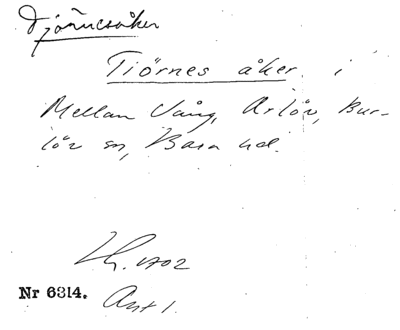 Tjörnes åker i
Mellan Vång, Arlöv, Bur-
löv sn, Bara hd.
Lh. 1702
Nr 6314.
Avt 1.